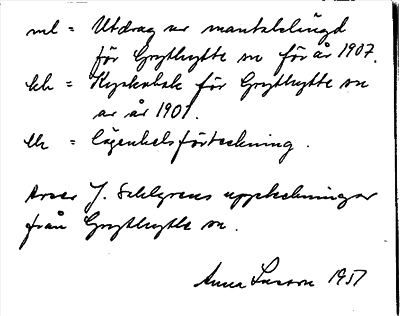 ml = Utdrag ur mantalslängd
för Grythytte sn för år 1907.
kb = Kyrkobok för Grythytte sn
av år 1901.
lh = Lägenhetsförteckning.
J. Sahlgrens uppteckningar
från Grythytte sn.
Anna Larsson 1951